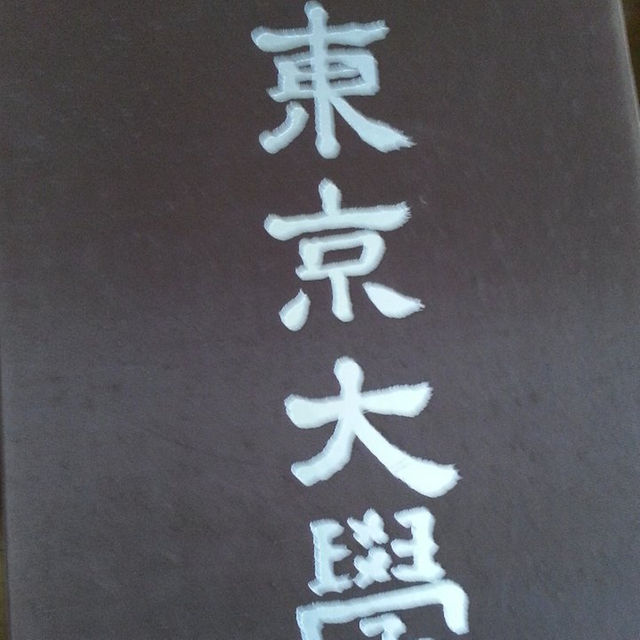 東京大學